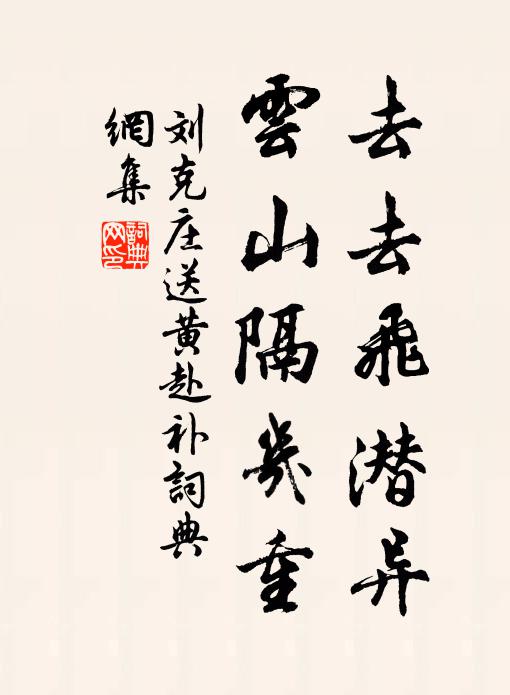 去去飛潜异
雲山隔幾重
刘克庄送黄赴补詞典
網集
詞典
网印